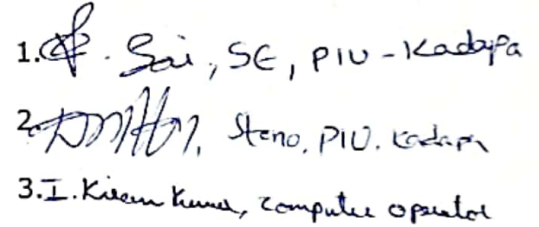 1. Sai, SE, PIU - Kadapa
2. Steno, PIU. Kadapa
3. I. Kiran Kumar, Computer operator